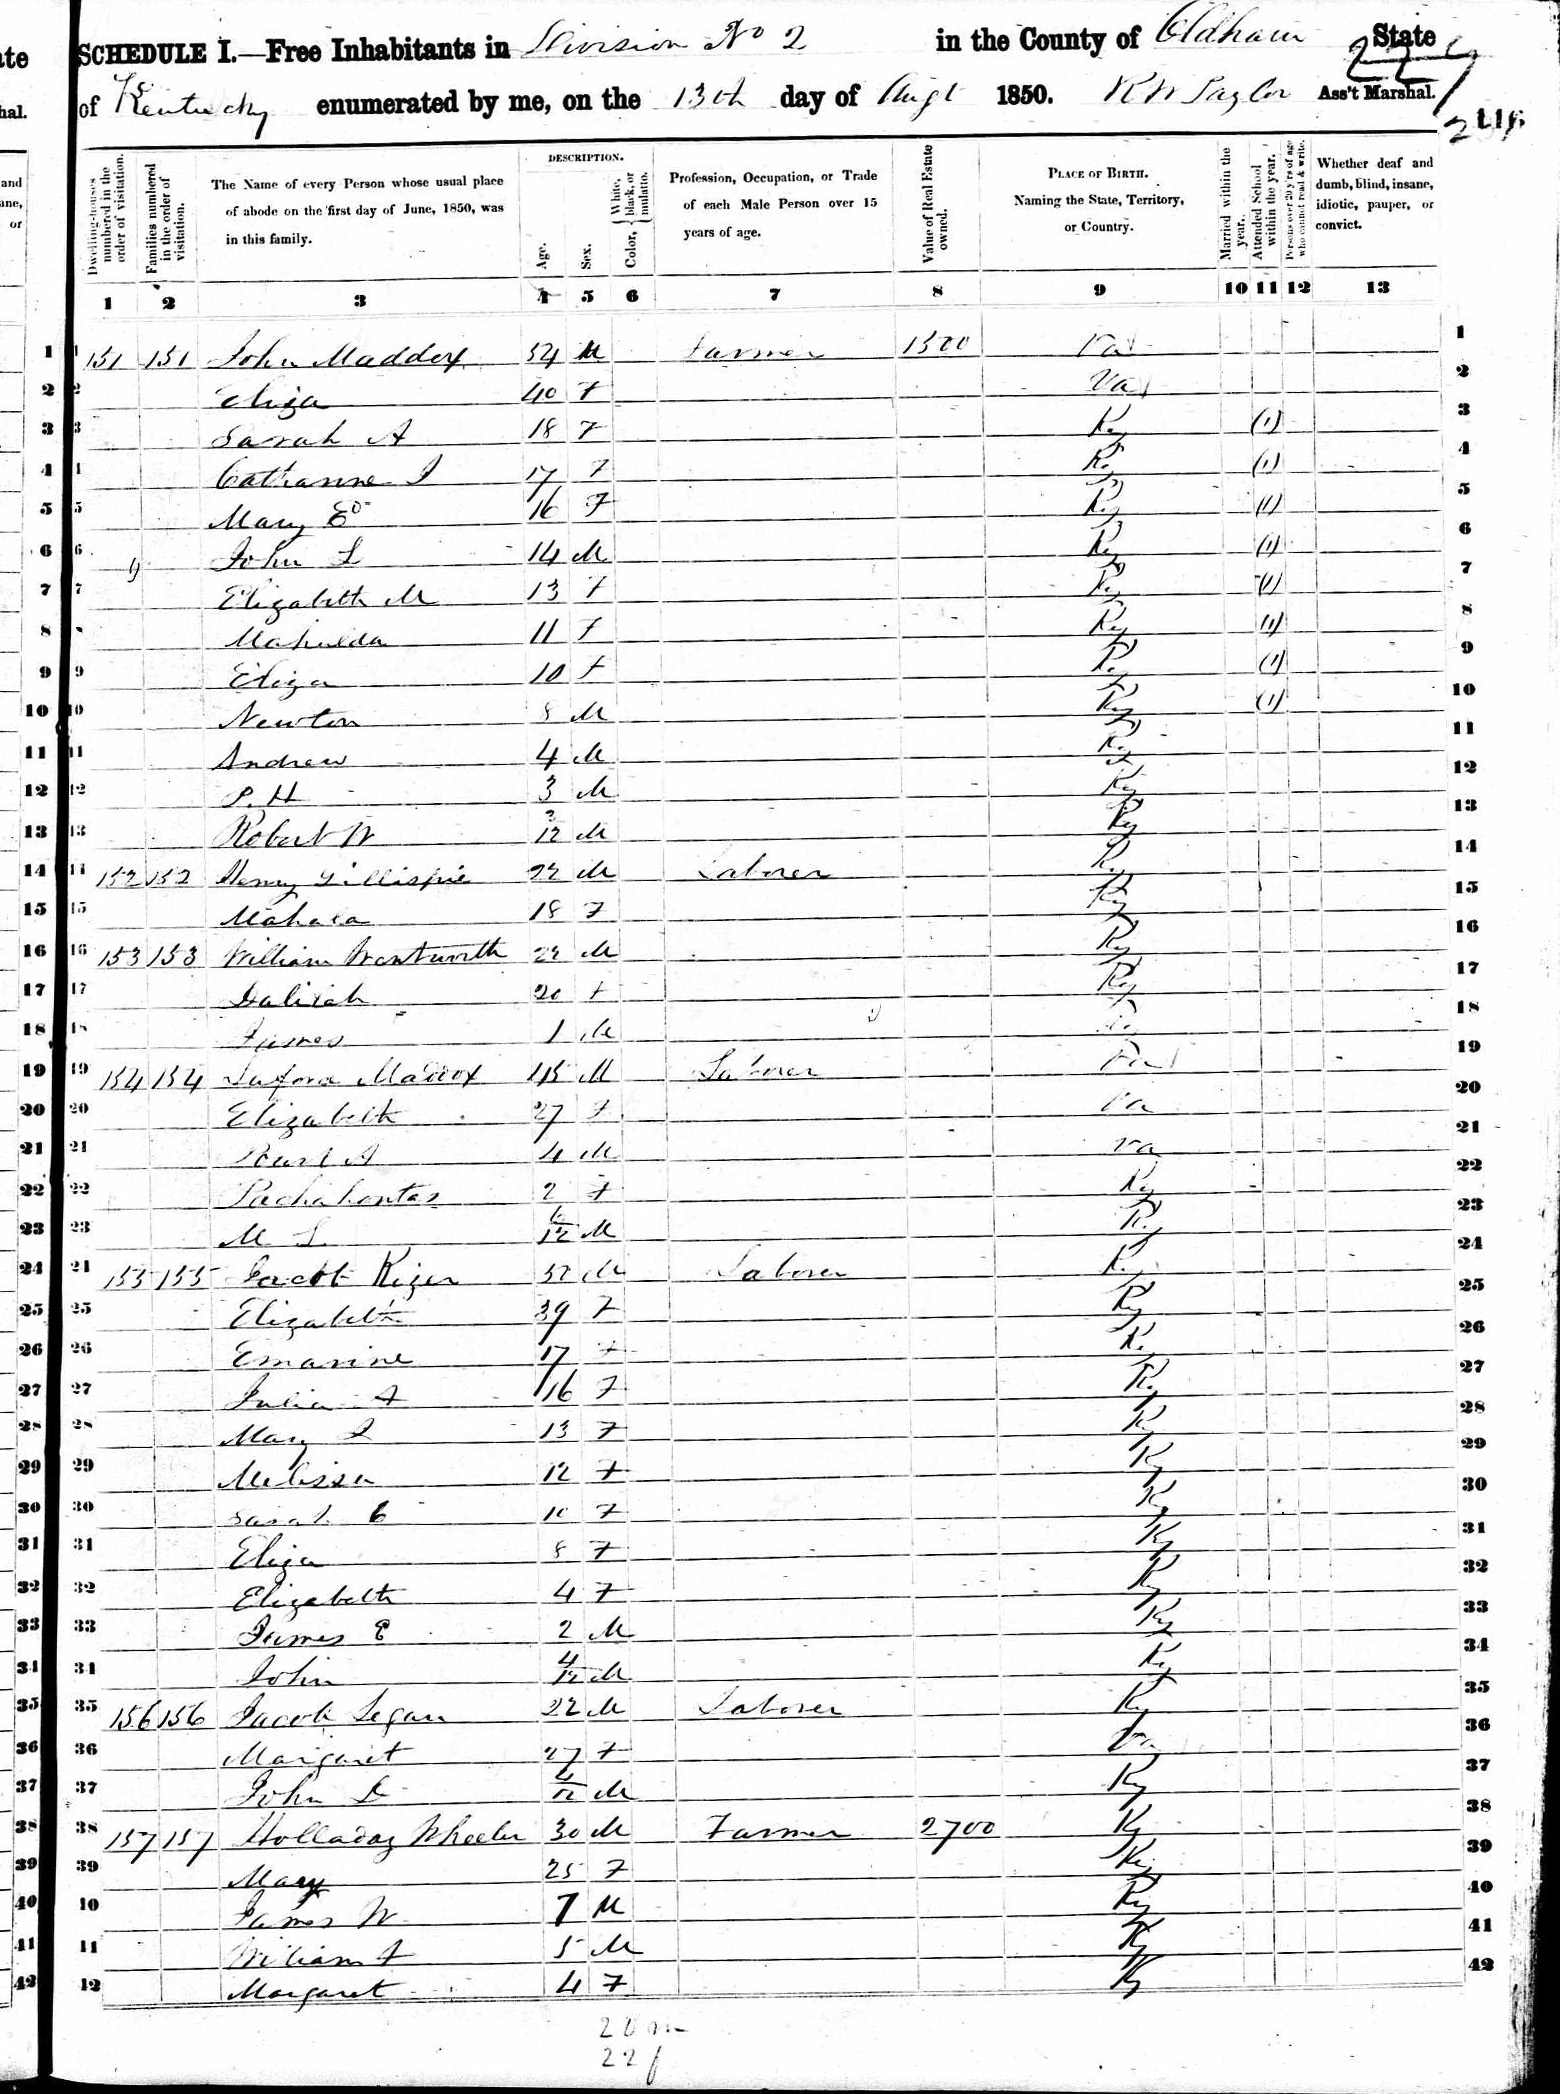 SCHEDULE I.—Free Inhabitants in Division No 2 in the County of Oldham State
of Kentucky enumerated by me, on the 13th day of Augt 1850. R W Taylor Ass't Marshal.
Dwelling-houses numbered in the order of visitation.
Families numbered in the order of visitation.
The Name of every Person whose usual place of abode on the first day of June, 1850, was in this family.
DESCRIPTION.
Age.
Sex.
Color, { White, black, or mulatto.
Profession, Occupation, or Trade of each Male Person over 15 years of age.
Value of Real Estate owned.
PLACE OF BIRTH. Naming the State, Territory, or Country.
Married within the year.
Attended School within the year.
Persons over 20 y'rs of age who cannot read & write.
Whether deaf and dumb, blind, insane, idiotic, pauper, or convict.
1 2 3 4 5 6 7 8 9 10 11 12 13
1 151 151 John Maddox 54 M Farmer 1500 Va 1
2 Eliza 40 F Va 2
3 Sarah A 18 F Ky (1) 3
4 Catharine J 17 F Ky (1) 4
5 Mary E 16 F Ky (1) 5
6 John L 14 M Ky (1) 6
7 Elizabeth M 13 F Ky (1) 7
8 11 F Ky (1) 8
9 Eliza 10 F Ky (1) 9
10 Newton 8 M Ky (1) 10
11 Andrew 4 M Ky 11
12 P. H 3 M Ky 12
13 Robert W 3/12 M Ky 13
14 152 152 Henry Gillispie 22 M Laborer Ky 14
15 Mahala 18 F Ky 15
16 153 153 William Wentworth 22 M Ky 16
17 20 F Ky 17
18 James 1 M Ky 18
19 154 154 Maddox 45 M Laborer Va 19
20 Elizabeth 27 F Va 20
21 4 M Va 21
22 Pachahontas 2 F Ky 22
23 M L 6/12 M Ky 23
24 155 155 Jacob Kizer M Laborer Ky 24
25 Elizabeth 39 F Ky 25
26 Emarine 17 F Ky 26
27 Julia A 16 F Ky 27
28 Mary J 13 F Ky 28
29 Melissa 12 F Ky 29
30 Sarah C 10 F Ky 30
31 Eliza 8 F Ky 31
32 Elizabeth 4 F Ky 32
33 James E 2 M Ky 33
34 John 4/12 M Ky 34
35 156 156 Jacob Segan 22 M Laborer Ky 35
36 Margaret 27 F Va 36
37 John D 4/12 M Ky 37
38 157 157 Holladay Wheeler 30 M Farmer 2700 Ky 38
39 Mary 25 F Ky 39
40 James W 7 M Ky 40
41 William A 5 M Ky 41
42 Margaret 4 F Ky 42
20 m
22 f